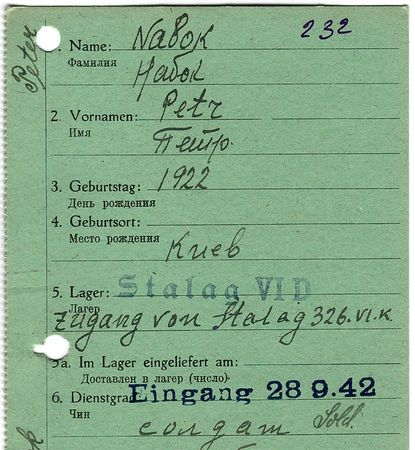 232
Peter
1. Name: Nabok
Фамилия Набок
2. Vornamen: Petr
Имя Петр.
3. Geburtstag: 1922
День рождения
4. Geburtsort:
Место рождения Киев
5. Lager: Stalag VI D
Лагерь
Zugang von Stalag 326.VI.K
5a. Im Lager eingeliefert am:
Доставлен в лагерь (число)
6. Dienstgrad Eingang 28 9.42
Чин солдат Sold.